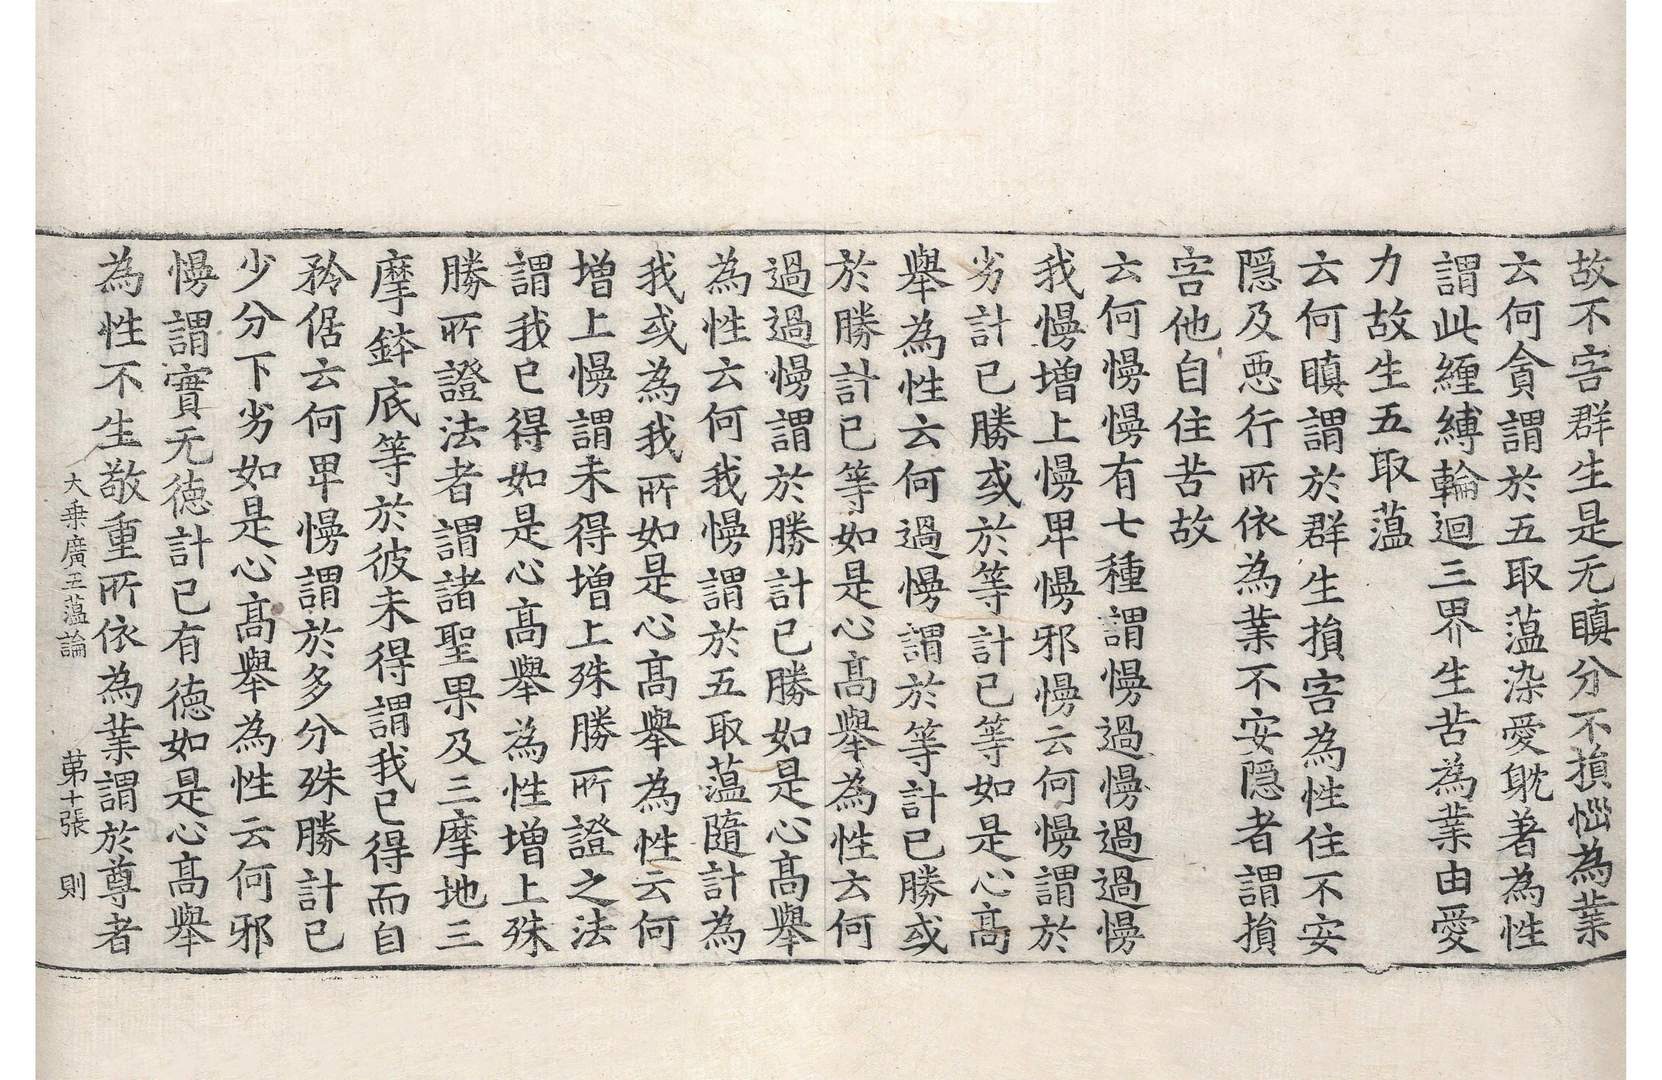 故不害群生是无瞋分不損惱為業
云何貪謂於五取薀染愛躭著為性
謂此纏縛輪迴三界生苦為業由愛
力故生五取薀
云何瞋謂於群生損害為性住不安
隱及惡行所依為業不安隱者謂損
害他自住苦故
云何慢慢有七種謂慢過慢過過慢
我慢增上慢卑慢邪慢云何慢謂於
劣計己勝或於等計己等如是心高
舉為性云何過慢謂於等計己勝或
於勝計己等如是心高舉為性云何
過過慢謂於勝計己勝如是心高舉
為性云何我慢謂於五取薀隨計為
我或為我所如是心高舉為性云何
增上慢謂未得增上殊勝所證之法
謂我已得如是心高舉為性增上殊
勝所證法者謂諸聖果及三摩地三
摩鉢底等於彼未得謂我已得而自
矜倨云何卑慢謂於多分殊勝計己
少分下劣如是心高舉為性云何邪
慢謂實无德計己有德如是心高舉
為性不生敬重所依為業謂於尊者
大乘廣五薀論 第十張 則